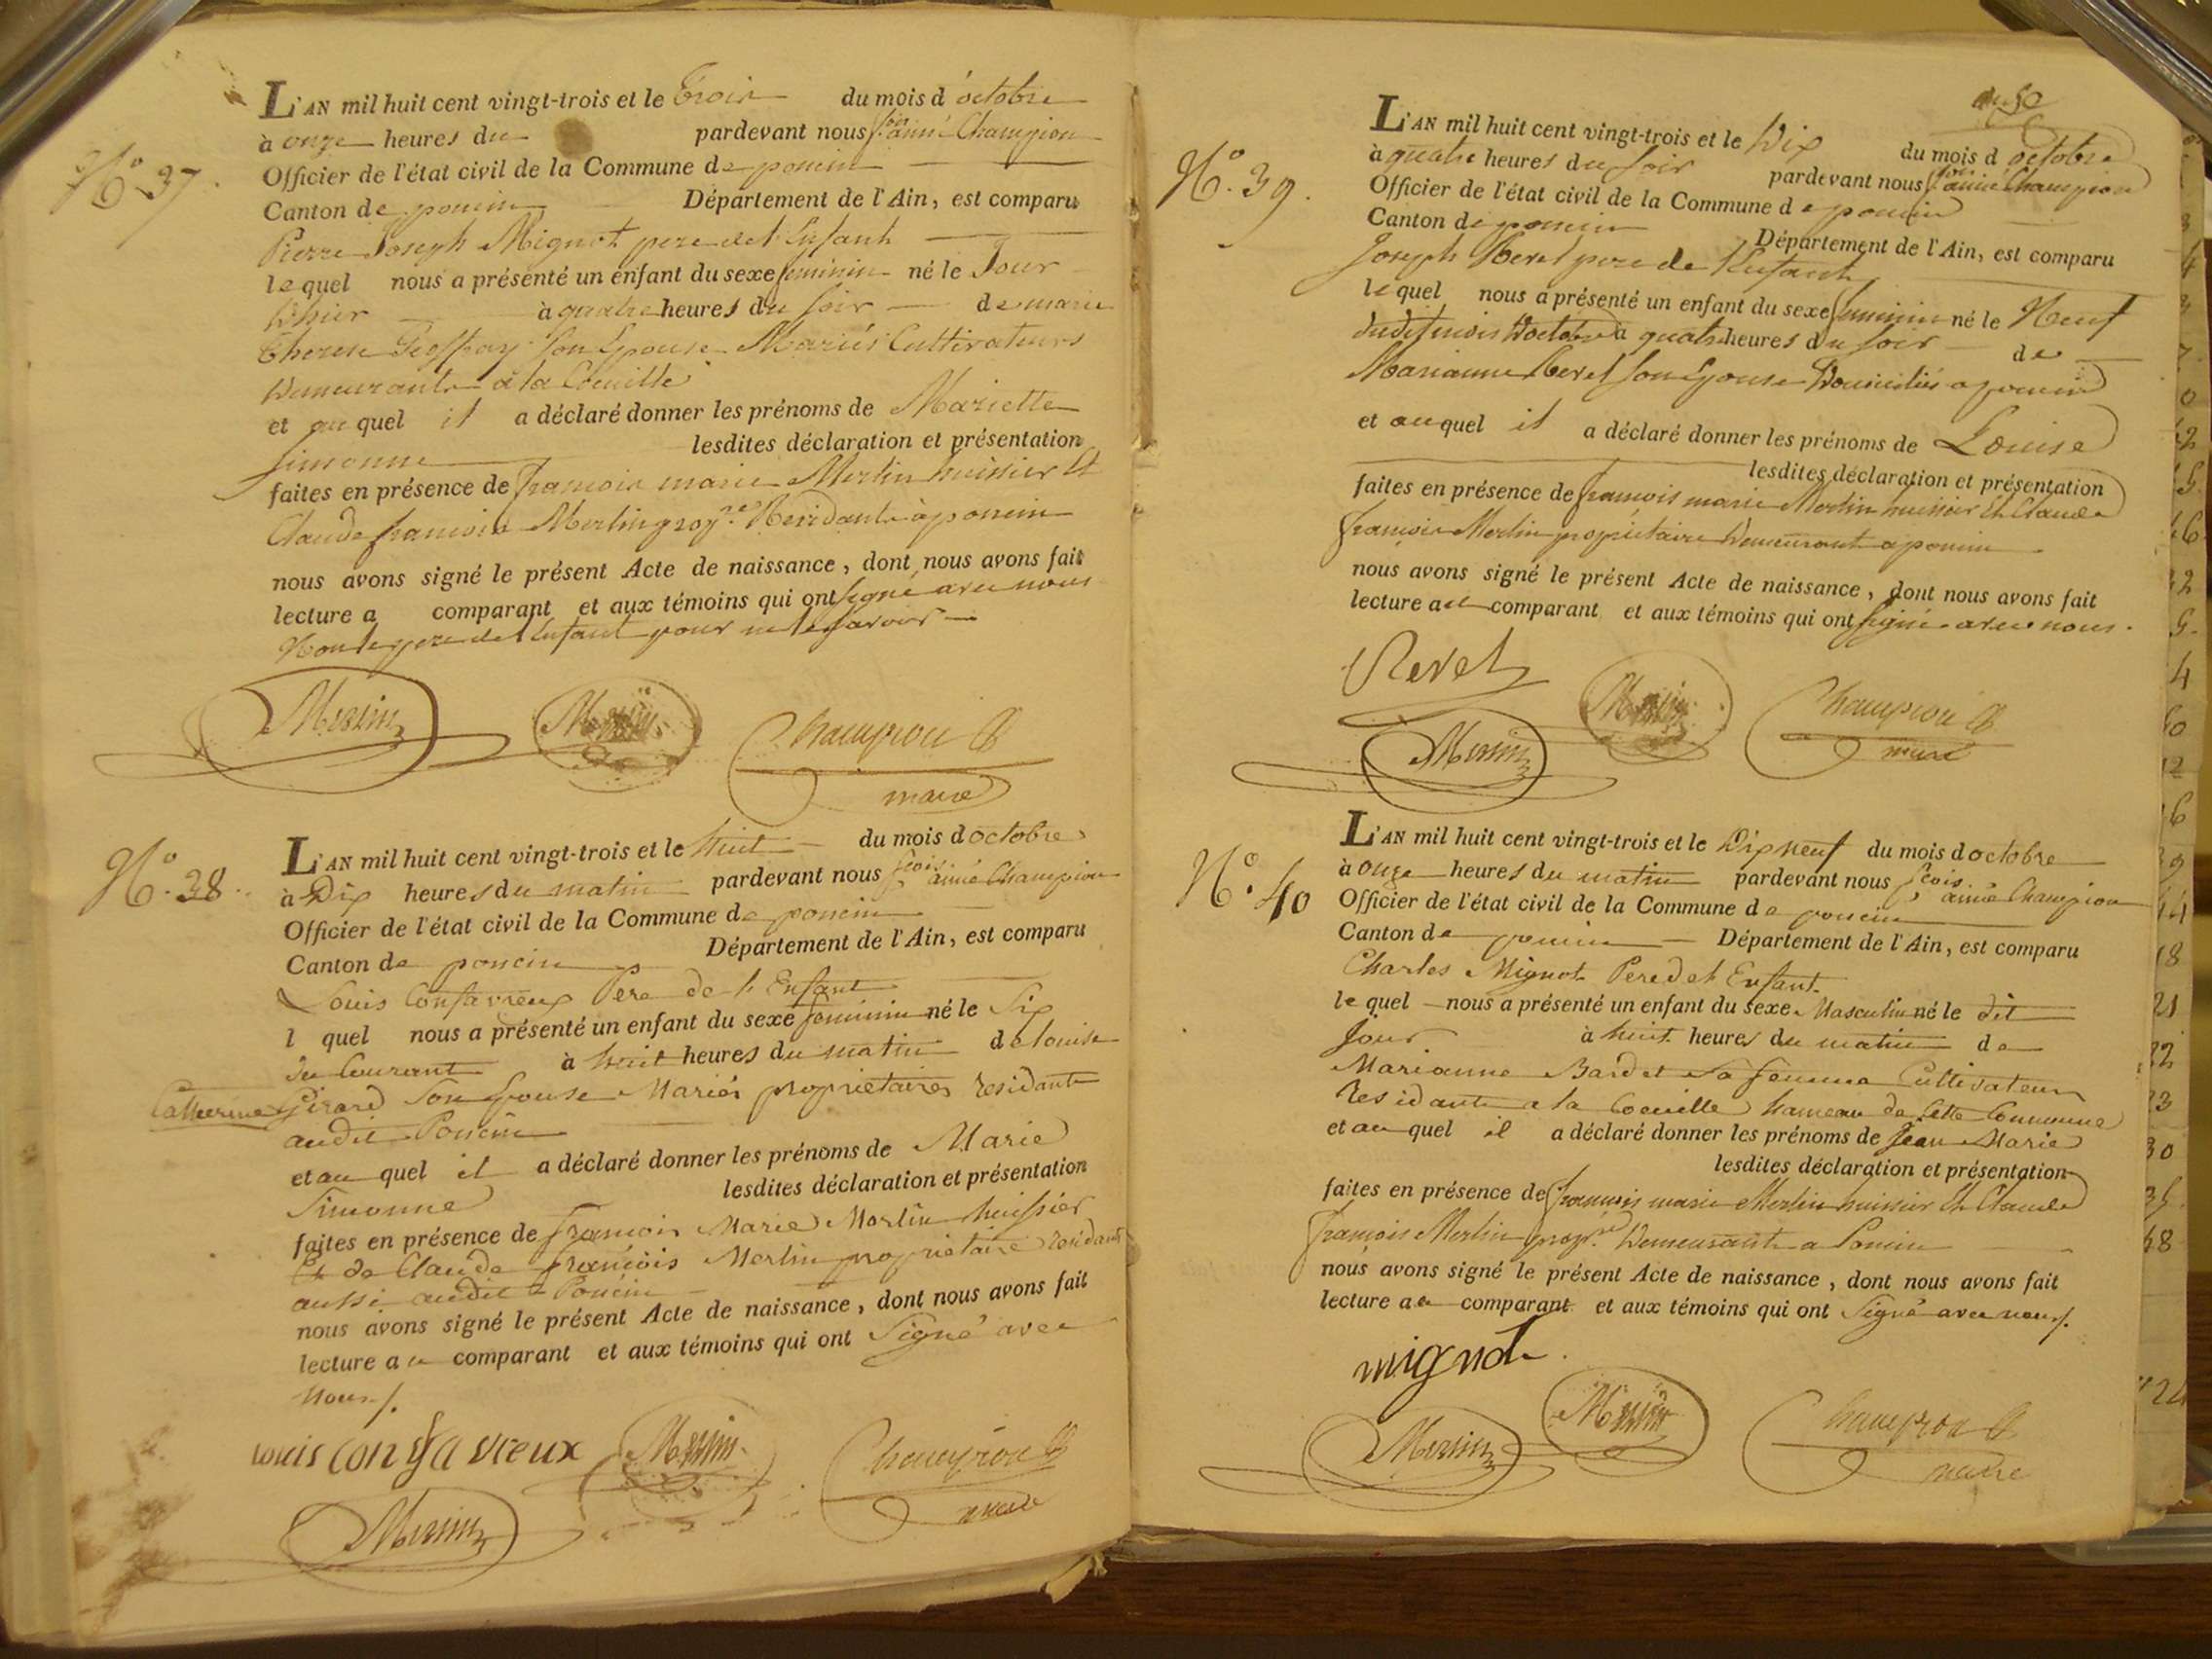 N.º 37.
L'AN mil huit cent vingt-trois et le trois du mois d'octobre
à onze heures du pardevant nous f.ois aimé Champion
Officier de l'état civil de la Commune de poncin
Canton de poncin Département de l'Ain, est comparu
Pierre Joseph Mignot pere de l'Enfant
le quel nous a présenté un enfant du sexe feminin né le Jour
D'hier à quatre heures du soir de marie
Therese Geoffray son Epouse Mariés Cultivateurs
Demeurants à la Coeuille
et au quel il a déclaré donner les prénoms de Mariette
Simonne lesdites déclaration et présentation
faites en présence de francois marie Merlin huissier Et
Claude francois Merlin propre. Residants à poncin
nous avons signé le présent Acte de naissance, dont nous avons fait
lecture a comparant et aux témoins qui ont signé avec nous
Non le pere de l'Enfant pour ne le savoir
Merlin Merlin Champion
maire
N.º 38.
L'AN mil huit cent vingt-trois et le huit du mois d octobre
à Dix heures du matin pardevant nous f.cois aimé Champion
Officier de l'état civil de la Commune de poncin
Canton de poncin Département de l'Ain, est comparu
Louis Confavreux Pere de l'Enfant
l quel nous a présenté un enfant du sexe feminin né le Six
du Courant à huit heures du matin de louise
Catherine Girard Son Epouse Mariés propriétaires residants
audit Poncin
et au quel il a déclaré donner les prénoms de Marie
Simonne lesdites déclaration et présentation
faites en présence de francois Marie Merlin huissier
Et de Claude francois Merlin propriétaire residants
aussi audit Poncin
nous avons signé le présent Acte de naissance, dont nous avons fait
lecture au comparant et aux témoins qui ont Signé avec
Nous/.
Louis confavreux Merlin Champion
Merlin maire
N.º 39.
L'AN mil huit cent vingt-trois et le Dix du mois d octobre
à quatre heures du soir pardevant nous f.ois aimé Champion
Officier de l'état civil de la Commune de poncin
Canton de poncin Département de l'Ain, est comparu
Joseph Revel pere de l'Enfant
le quel nous a présenté un enfant du sexe feminin né le Neuf
dudit mois D'octobre à quatre heures du soir de
Marianne Revel son Epouse Domiciliés a poncin
et au quel il a déclaré donner les prénoms de Louise
lesdites déclaration et présentation
faites en présence de francois marie Merlin huissier Et Claude
francois Merlin propriétaire Demeurant a poncin
nous avons signé le présent Acte de naissance, dont nous avons fait
lecture au comparant et aux témoins qui ont signé avec nous.
Revel
Merlin Merlin Champion
maire
N.º 40
L'AN mil huit cent vingt-trois et le Dix neuf du mois d octobre
à onze heures du matin pardevant nous f.cois aimé Champion
Officier de l'état civil de la Commune de poncin
Canton de poncin Département de l'Ain, est comparu
Charles Mignot Pere de l'Enfant
le quel nous a présenté un enfant du sexe Masculin né le dit
Jour à huit heures du matin de
Marianne Bardet Sa femme Cultivateurs
Residants a la Coeuille hameau de Cette Commune
et au quel il a déclaré donner les prénoms de Jean Marie
lesdites déclaration et présentation
faites en présence de francois marie Merlin huissier Et Claude
francois Merlin propre. Demeurants a Poncin
nous avons signé le présent Acte de naissance, dont nous avons fait
lecture au comparant et aux témoins qui ont Signé avec nous/.
mignot
Merlin Merlin Champion
maire